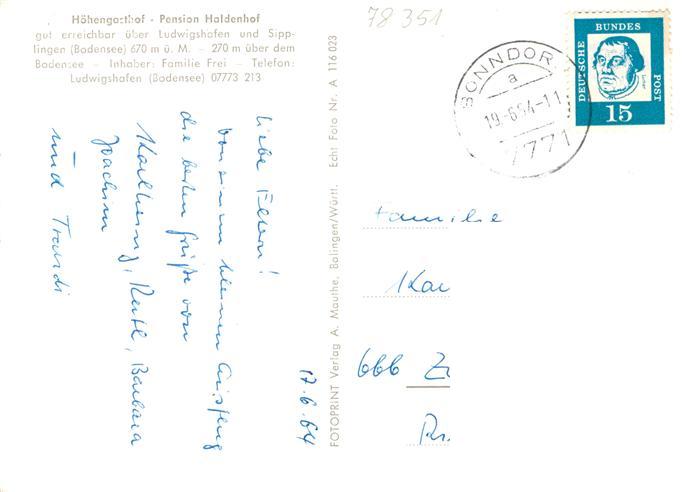 Höhengasthof - Pension Haldenhof
gut erreichbar über Ludwigshafen und Sipp-
lingen (Bodensee) 670 m ü. M. – 270 m über dem
Bodensee – Inhaber: Familie Frei – Telefon:
Ludwigshafen (Bodensee) 07773 213
78 351
BONNDOR
a
19.6.64-11
7771
DEUTSCHE BUNDES POST
Luther
15
Liebe Eltern!
Von einem kleinen Ausflug
die besten Grüße von
Karlheinz, Ruth, Barbara
Joachim
und Traudi
17.6.64
FOTOPRINT Verlag A. Mauthe, Balingen/Württ. Echt Foto Nr. A 116 023
Familie
Kar
666 Zr